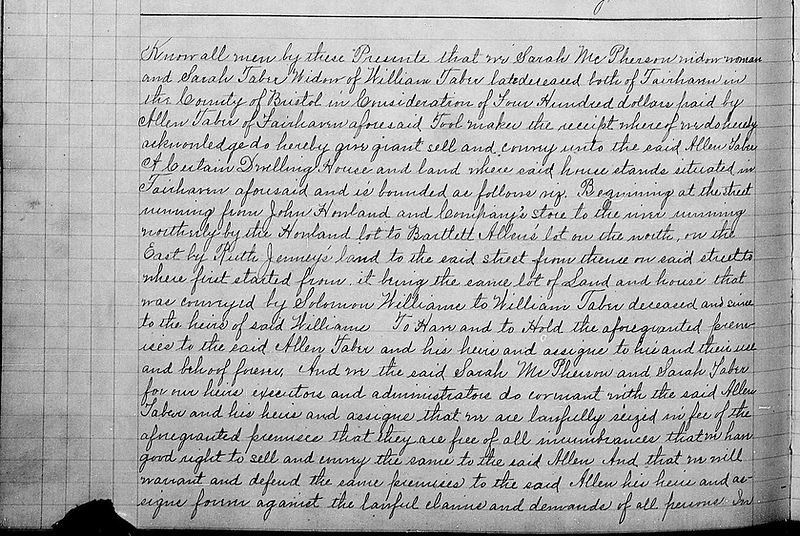 Know all men by these Presents that we Sarah Mc Pherson widow woman
and Sarah Taber Widow of William Taber late deceased both of Fairhaven in
the County of Bristol in Consideration of Four Hundred dollars paid by
Allen Taber of Fairhaven aforesaid Tool maker the receipt whereof we do hereby
acknowledge do hereby give grant sell and convey unto the said Allen Taber
A Certain Dwelling House and land where said house stands situated in
Fairhaven aforesaid and is bounded as follows viz. Beginning at the street
running from John Howland and Company's store to the river running
northerly by the Howland lot to Bartlett Allen's lot on the north, on the
East by Ruth Jenney's land to the said street from thence on said street to
where first started from, it being the same lot of Land and house that
was conveyed by Solomon Williams to William Taber deceased and since
to the heirs of said Williams To Have and to Hold the aforegranted prem-
ises to the said Allen Taber and his heirs and assigns to his and their use
and behoof forever, And we the said Sarah Mc Pherson and Sarah Taber
for our heirs executors and administrators do covenant with the said Allen
Taber and his heirs and assigns that we are lawfully seized in fee of the
aforegranted premises that they are free of all incumbrances that we have
good right to sell and convey the same to the said Allen And that we will
warrant and defend the same premises to the said Allen his heirs and as-
signs forever against the lawful claims and demands of all persons In